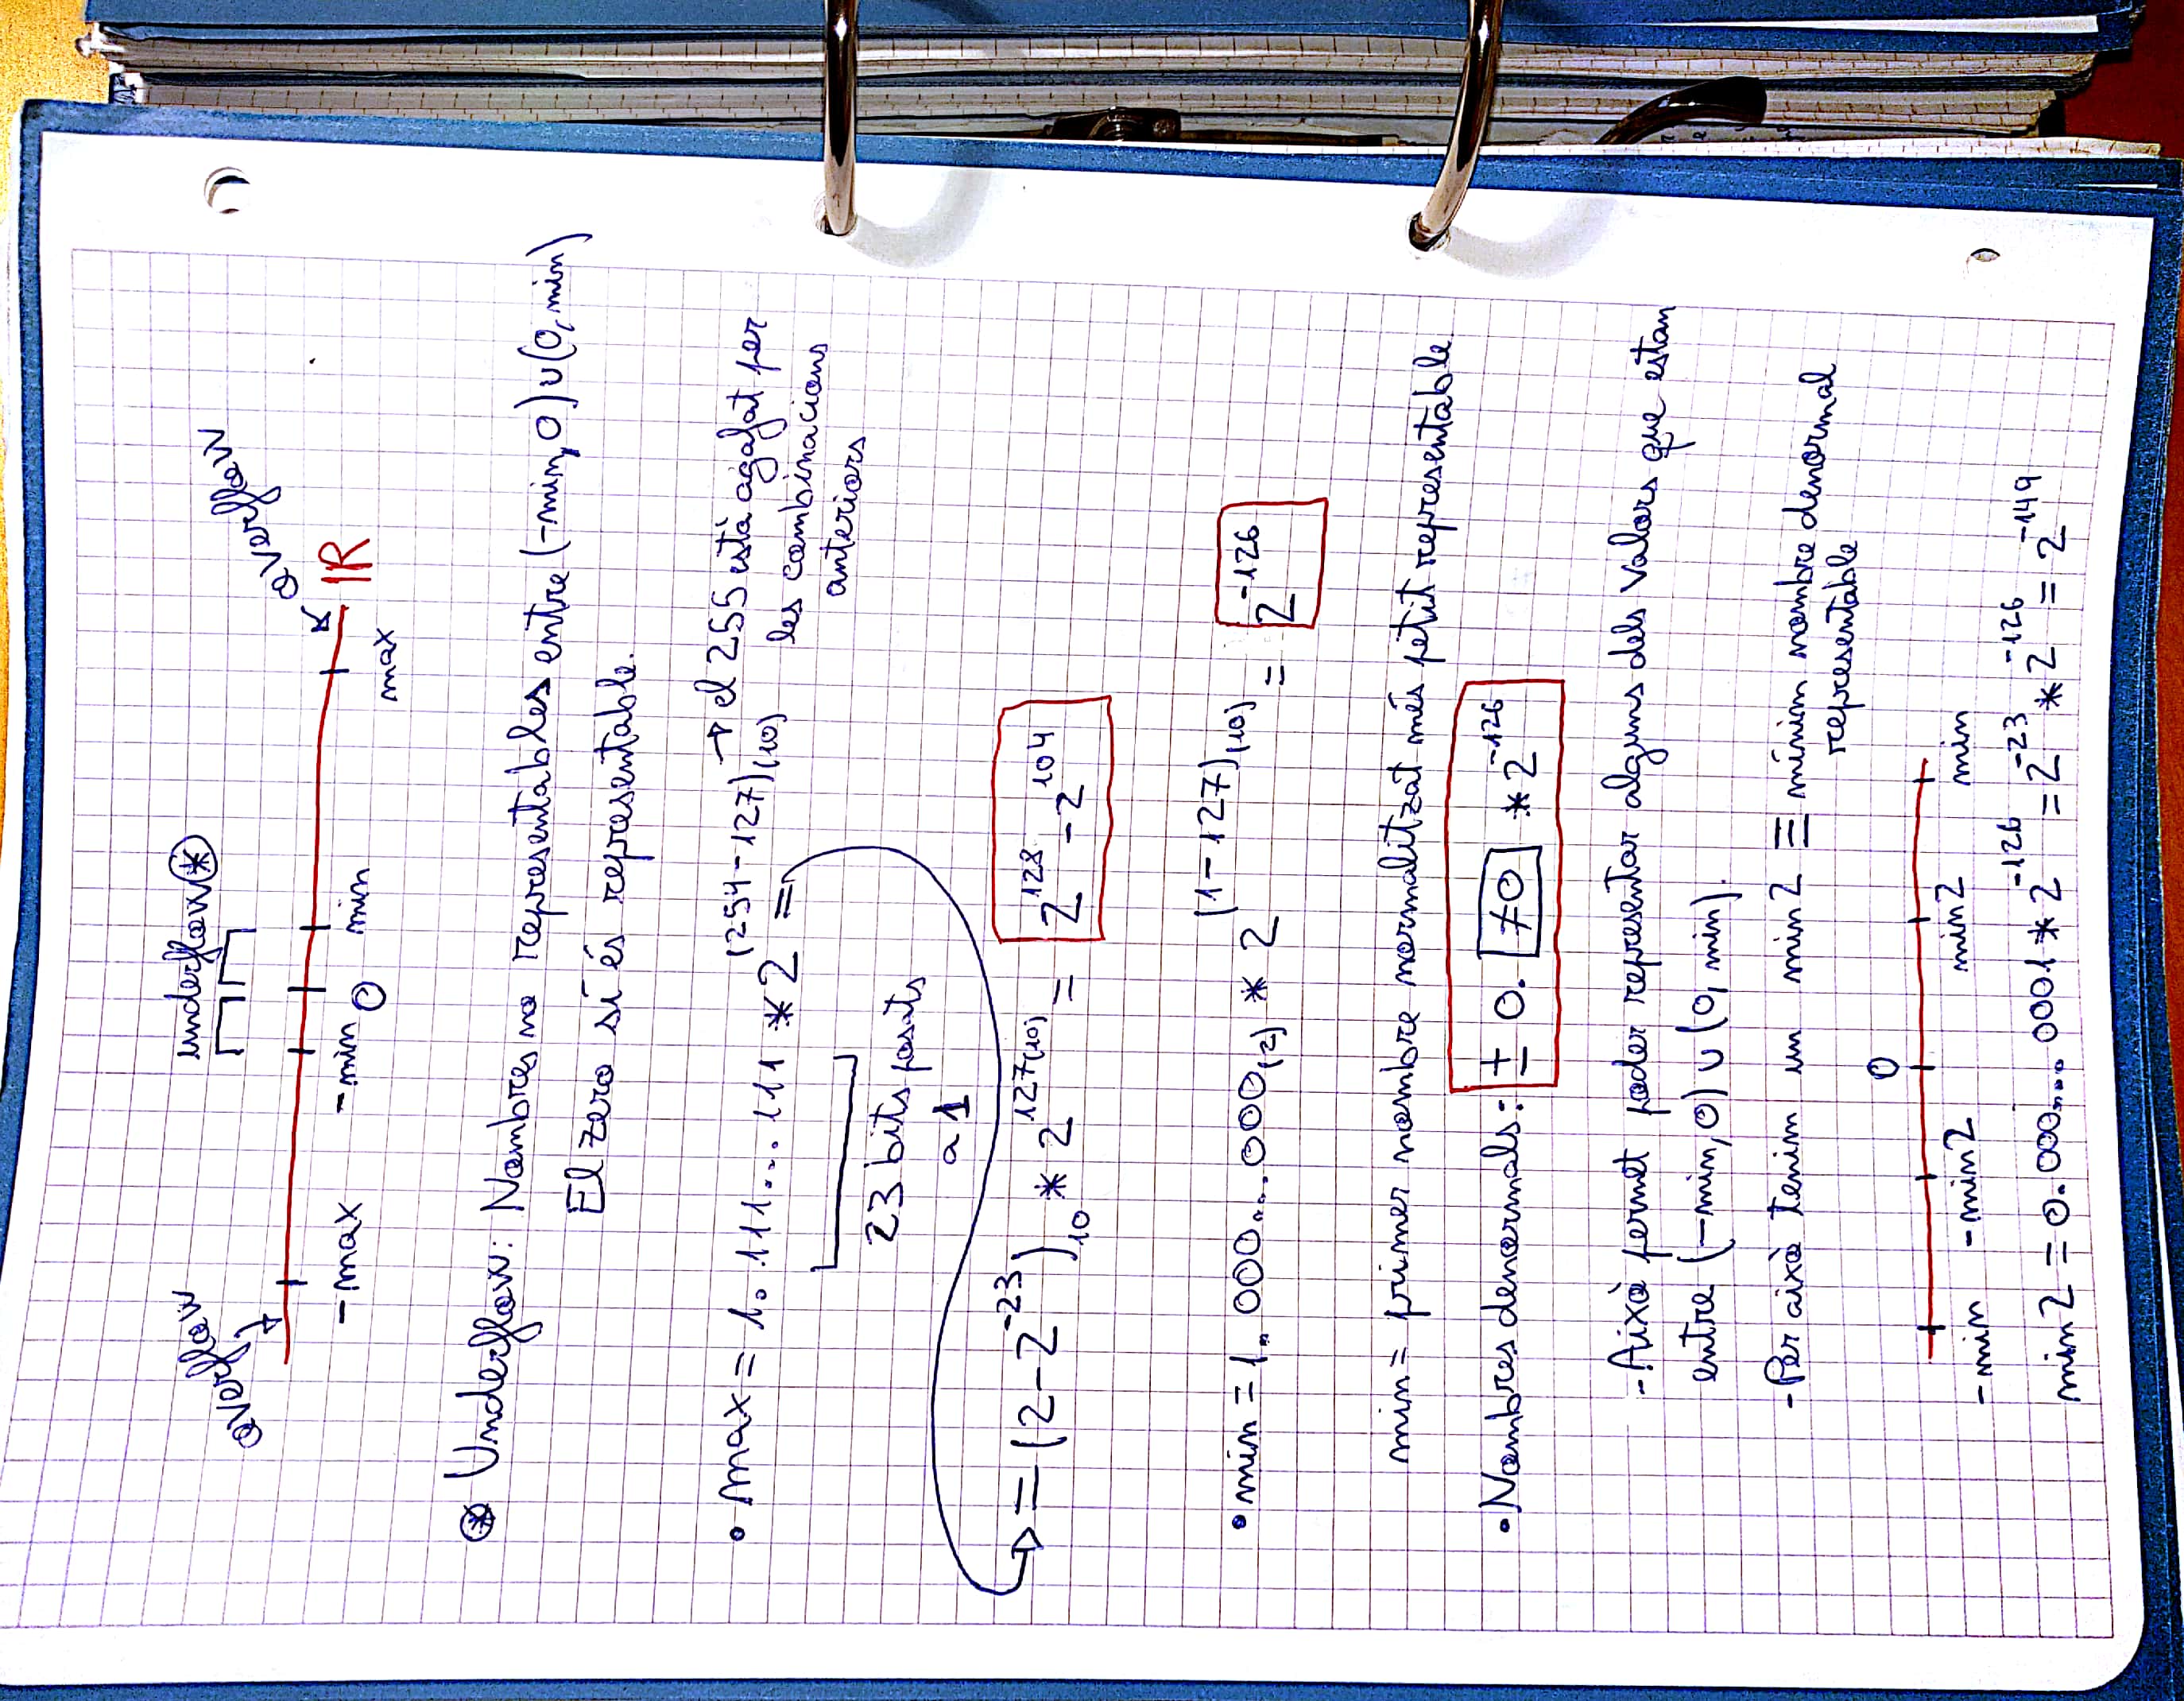 overflow underflow * overflow
-max -min 0 min max ℝ
* Underflow: Nombres no representables entre (-min, 0) ∪ (0, min)
El zero sí és representable.
• max = 1.111...111 * 2^(254-127)(10) = → el 255 està agafat per
les combinacions
anteriors
23 bits posats
a 1
= (2-2^-23)10 * 2^127(10) = 2^128 - 2^104
• min = 1.000...000(2) * 2^(1-127)(10) = 2^-126
min = primer nombre normalitzat més petit representable
• Nombres denormals: ± 0. ≠0 * 2^-126
- Això permet poder representar alguns dels valors que estan
entre (-min, 0) ∪ (0, min).
- Per això tenim un min2 ≡ mínim nombre denormal
representable
0
-min -min2 min2 min
min2 = 0.000...0001 * 2^-126 = 2^-23 * 2^-126 = 2^-149